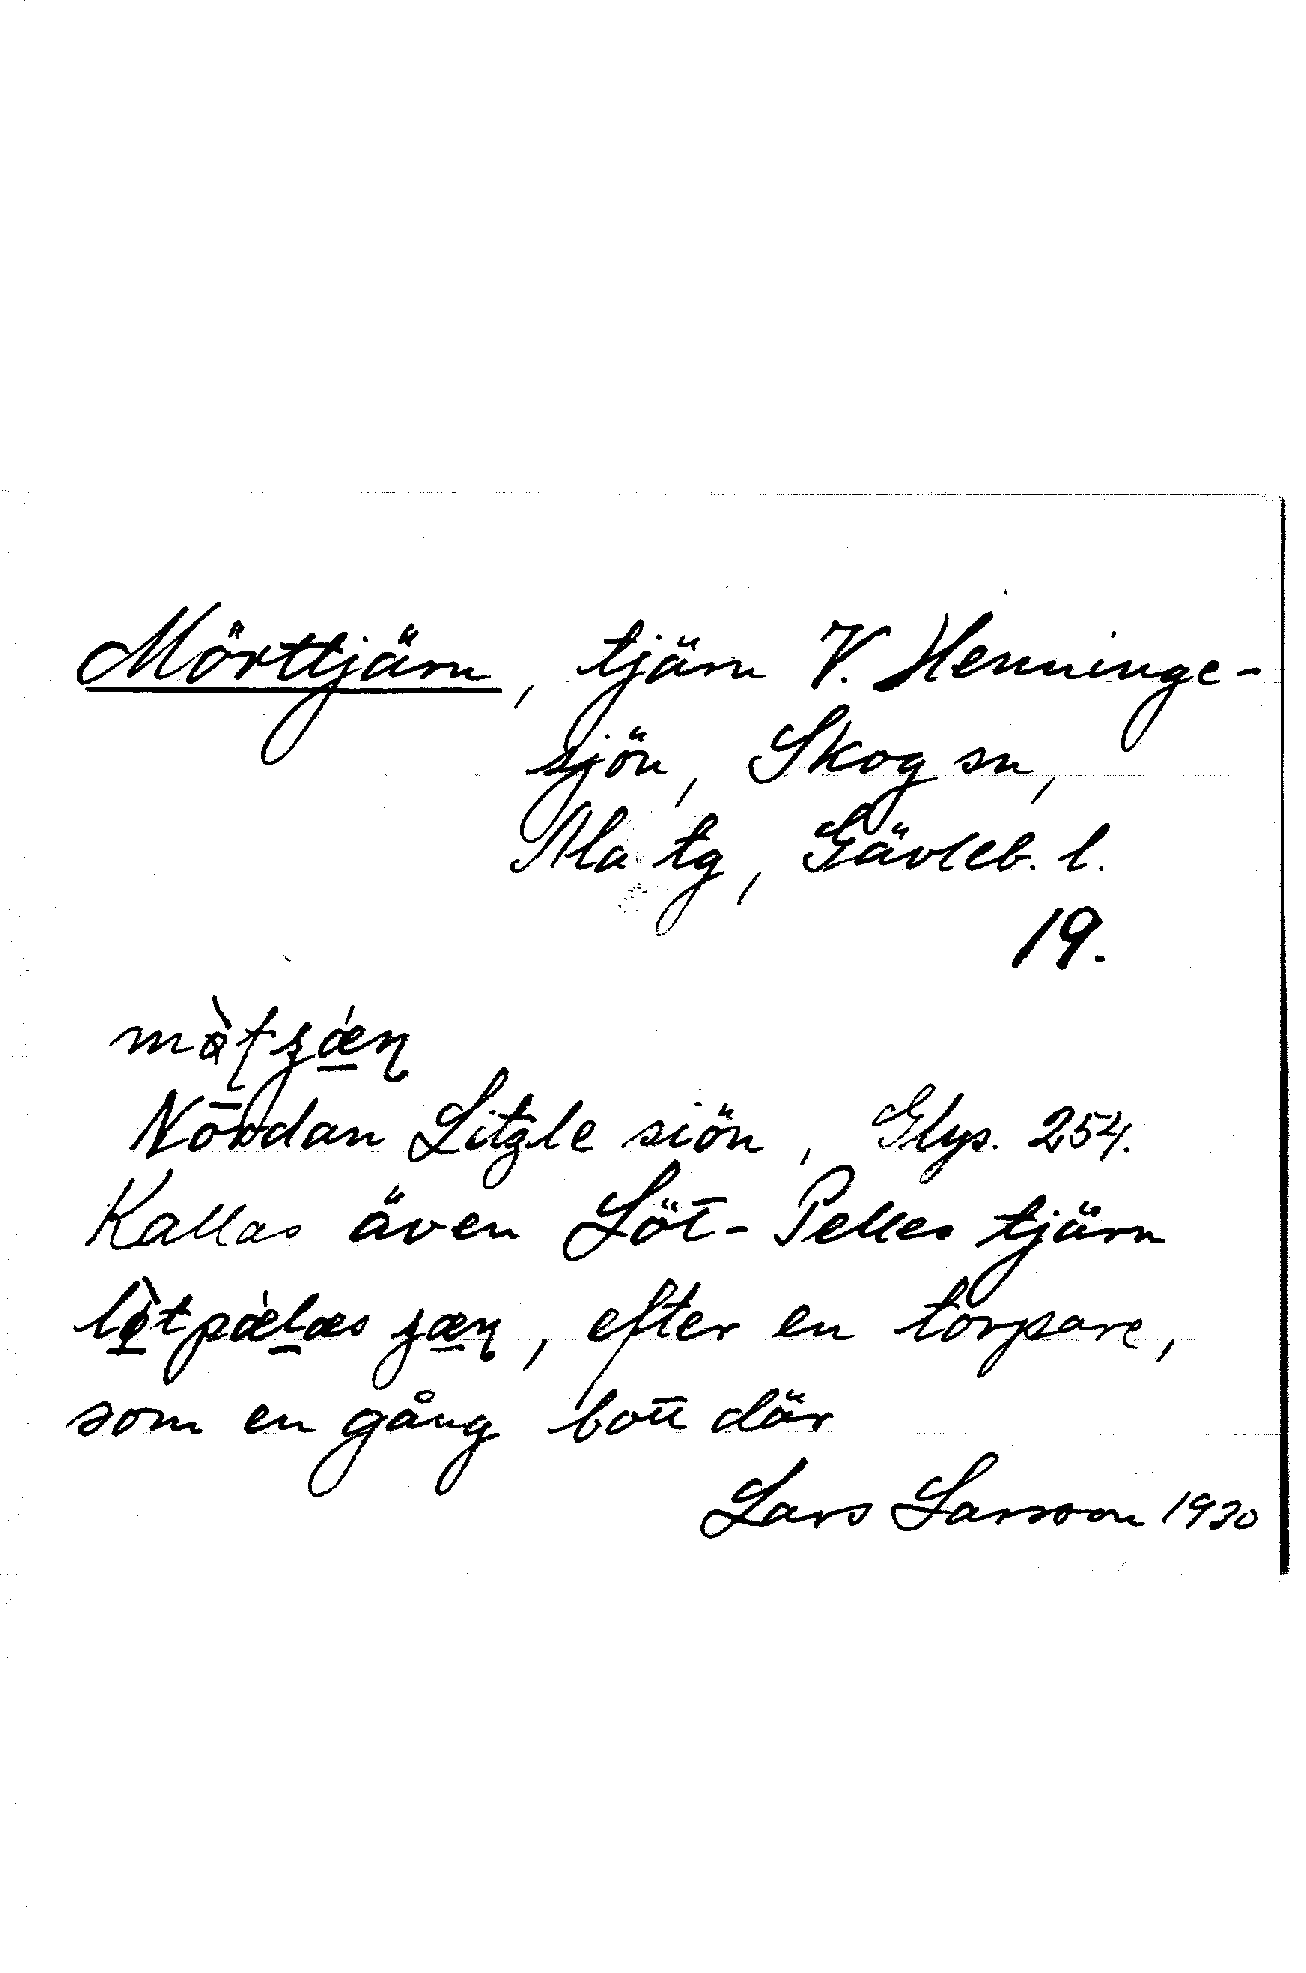 Mörttjärn, tjärn V. Henninge-
sjön, Skog sn,
Ala tg, Gävleb. l.
19.
Nordan Litzle siön, Glys. 254.
Kallas även Löt-Pelles tjärn
, efter en torpare,
som en gång bott där
Lars Larsson 1930